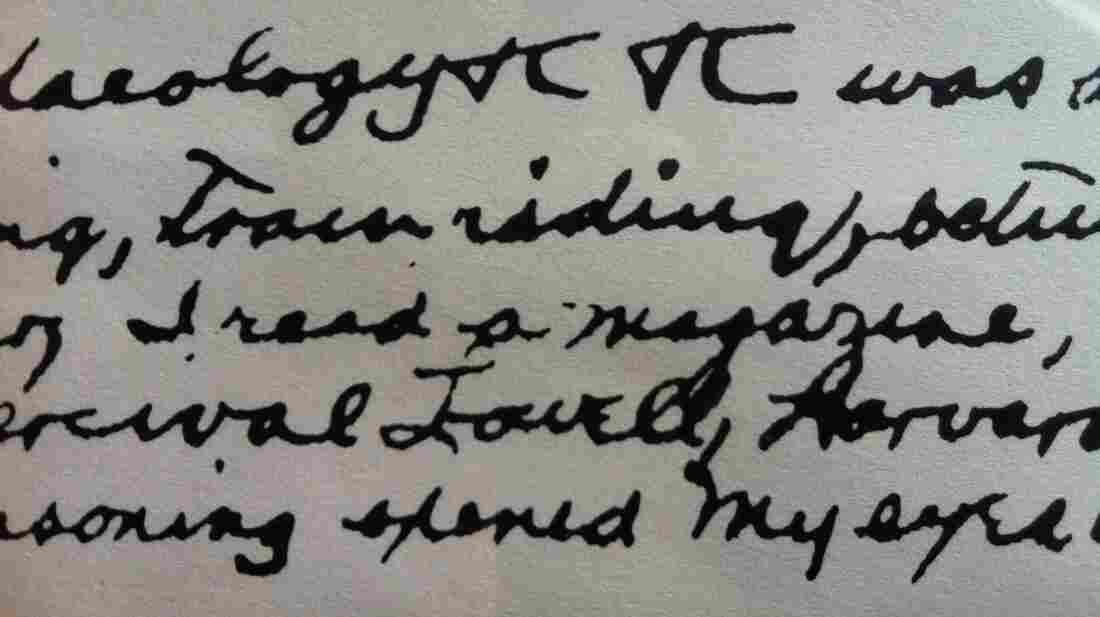 laeology π π was
ng, Train riding,
I read a magazine,
ercival Lowell, Harvar
soning opened My eyes